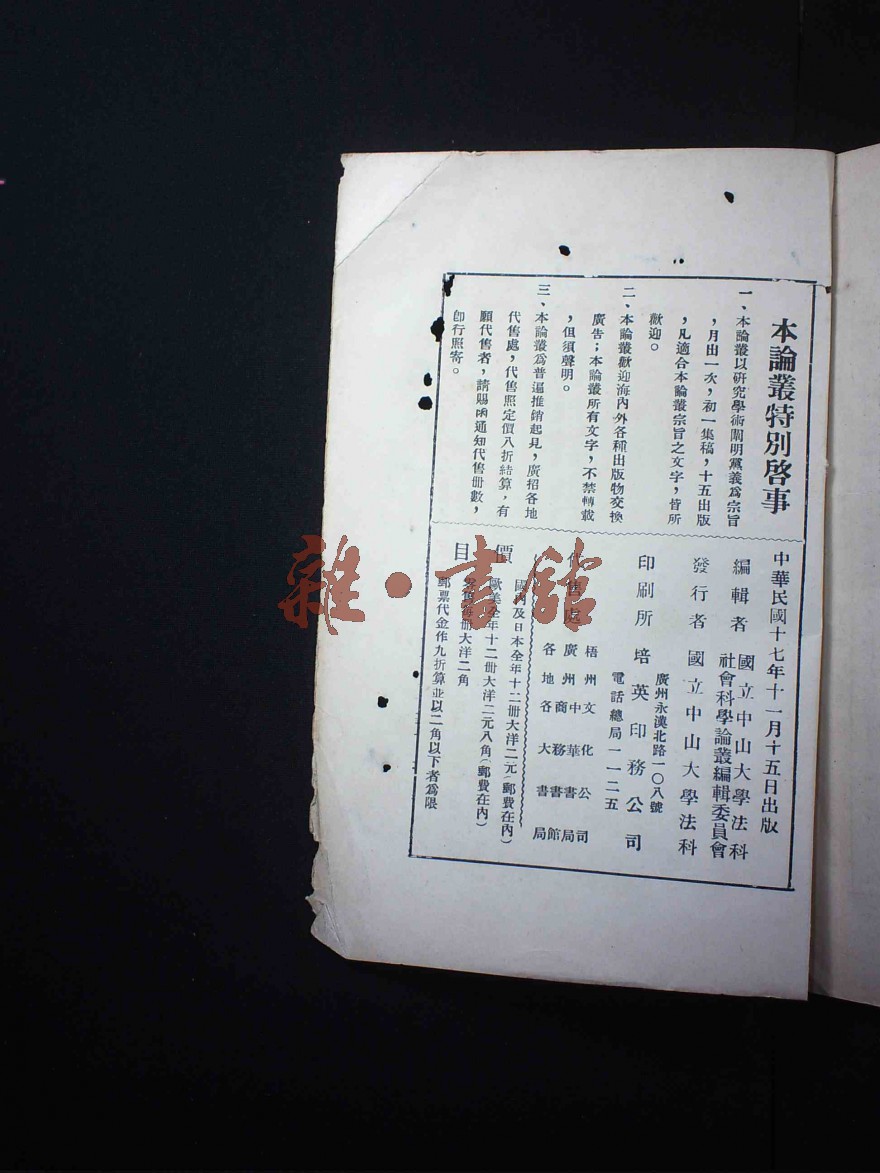 本論叢特別啓事
一、本論叢以研究學術闡明黨義爲宗旨
，月出一次，初一集稿，十五出版
，凡適合本論叢宗旨之文字，皆所
歡迎。
二、本論叢歡迎海內外各種出版物交換
廣告；本論叢所有文字，不禁轉載
，但須聲明。
三、本論叢爲普遍推銷起見，廣招各地
代售處，代售照定價八折結算，有
願代售者，請賜函通知代售冊數，
卽行照寄。
中華民國十七年十一月十五日出版
編輯者
國立中山大學法科
社會科學論叢編輯委員會
發行者 國立中山大學法科
印刷所 培英印務公司
廣州永漢北路一〇八號
電話總局一一二五
代售處
梧州文化公司
廣州中華書局
商務書館
各地各大書局
價目
國內及日本全年十二冊大洋二元（郵費在內）
歐美全年十二冊大洋二元八角（郵費在內）
零售每冊大洋二角
郵票代金作九折算並以二角以下者爲限
雜·書館